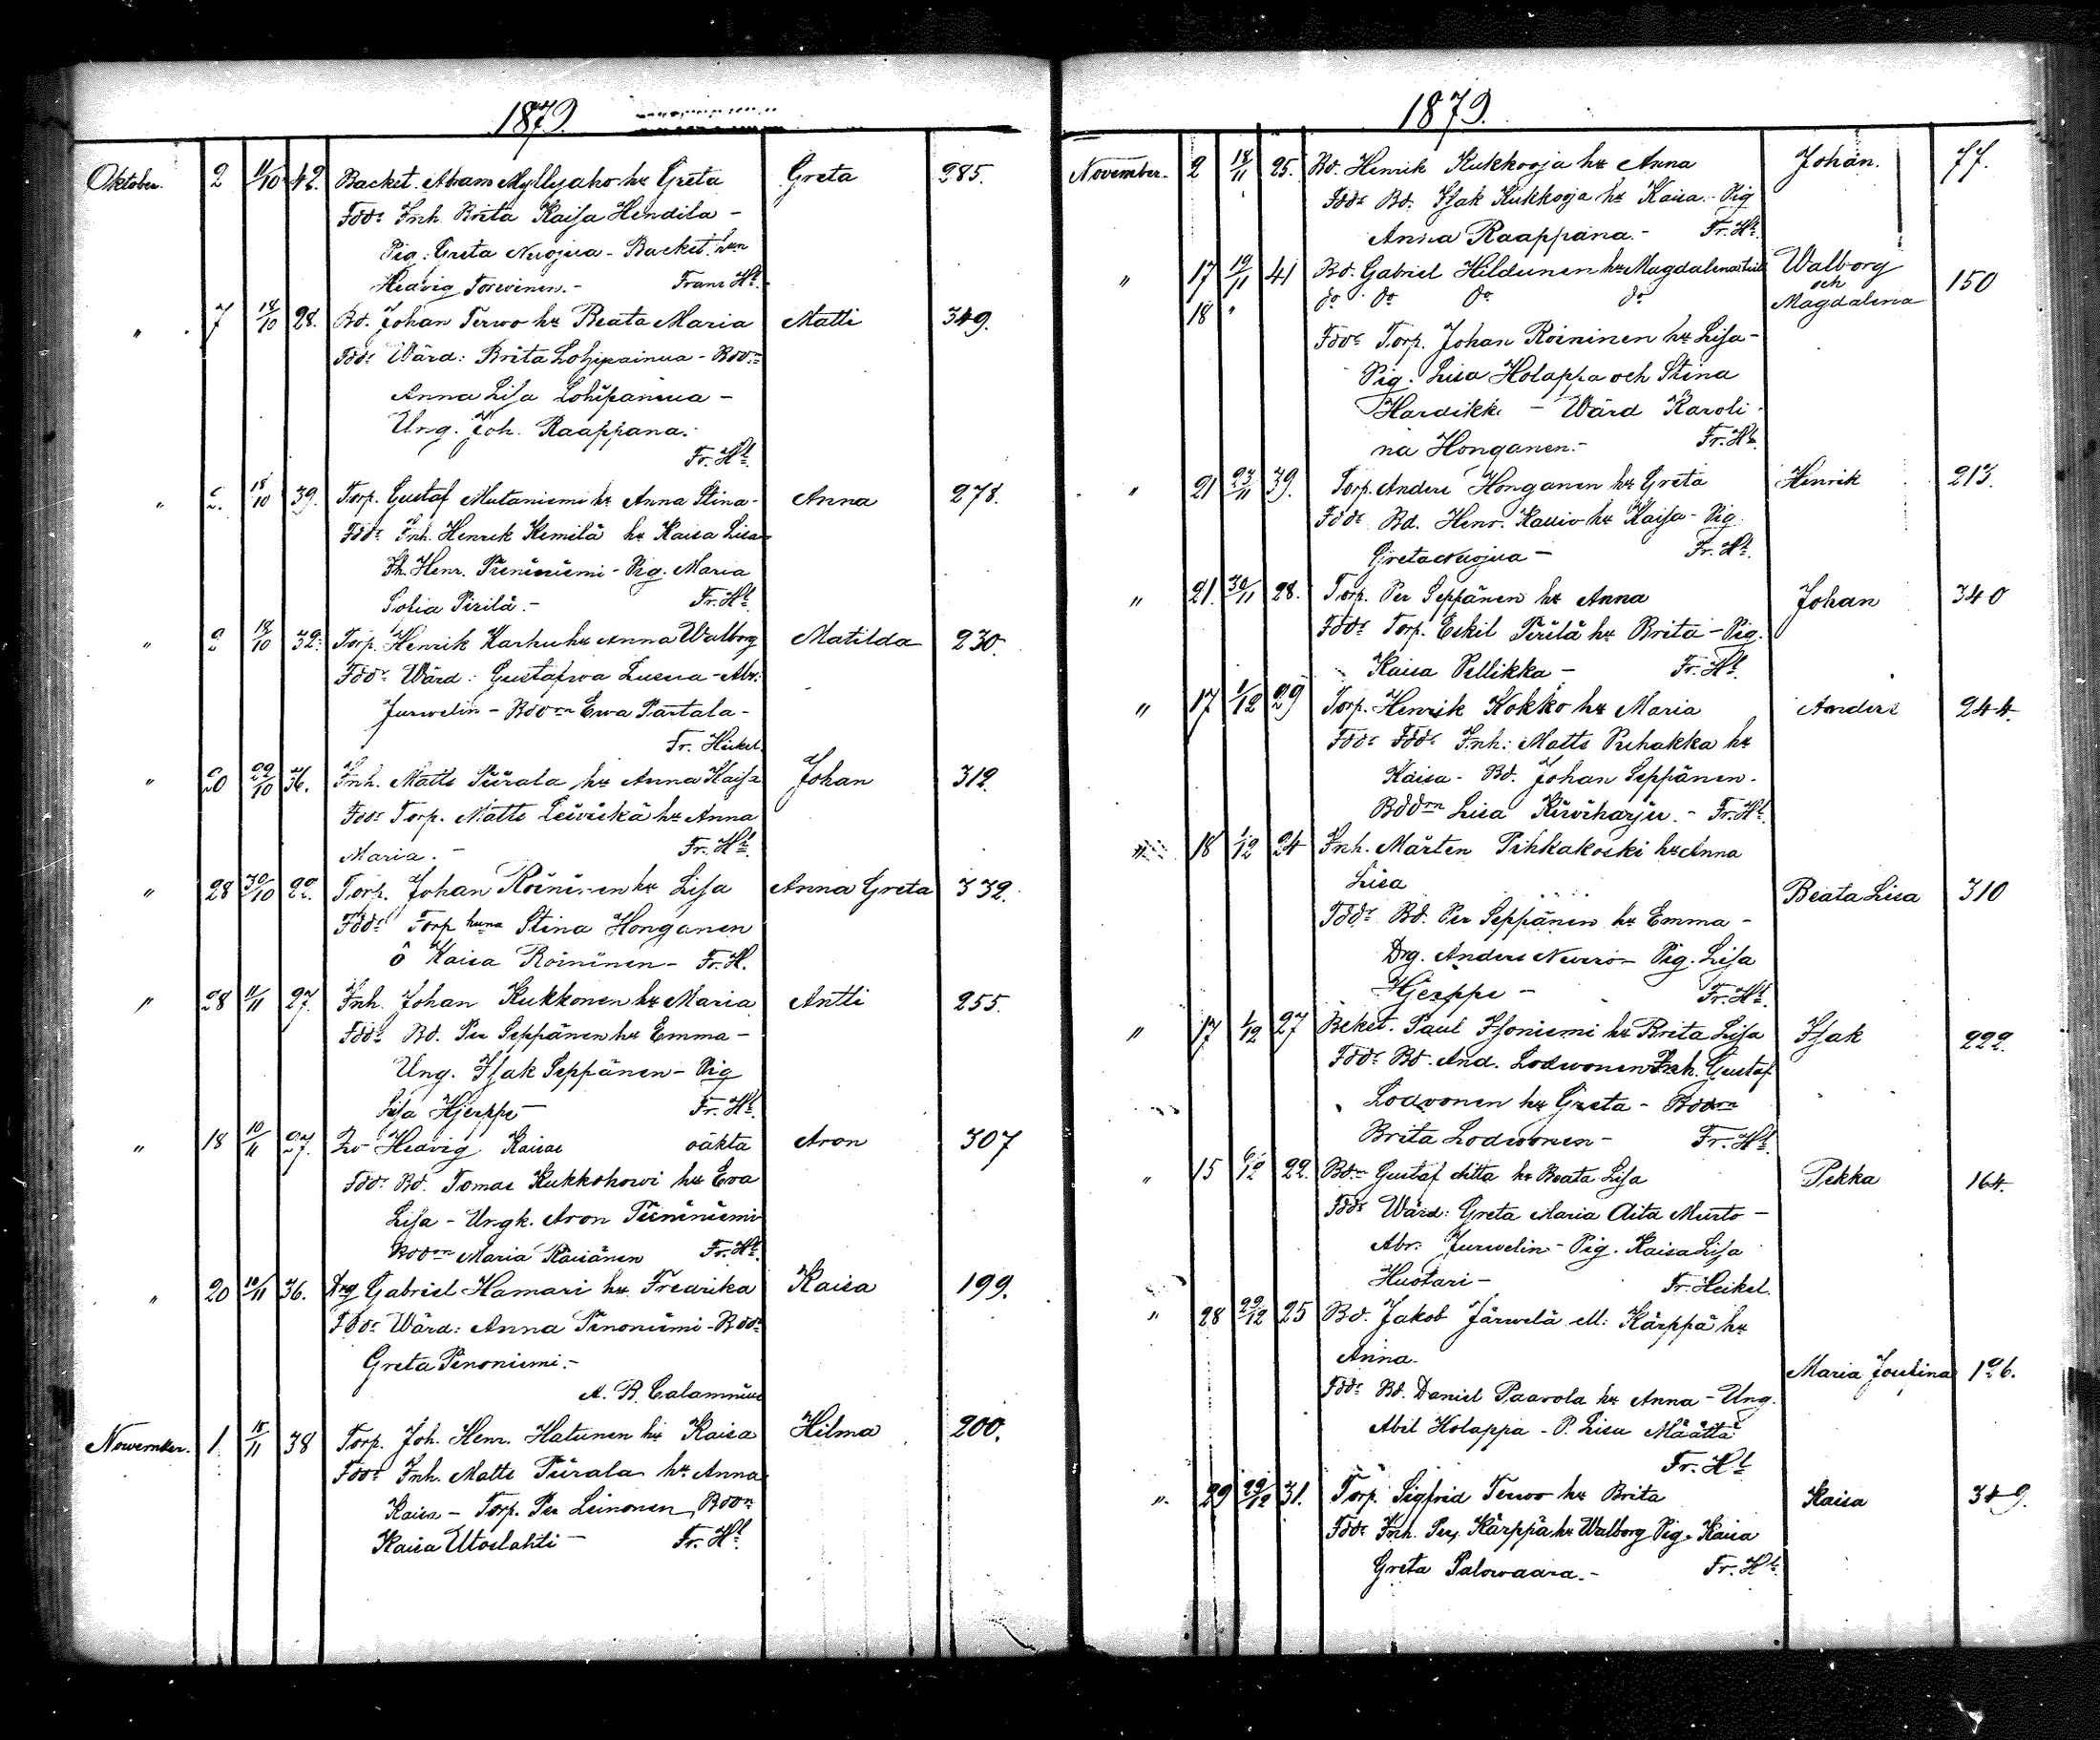 1879.
Oktober. 2 11/10 42. Backst. Abram Myllyaho hu Greta Greta 285.
Fdd: Inh. Brita Kaisa Hendila -
Pig: Greta Nuojua - Backst. hun
Hedvig Torvinen. - Frans Hl.
" 7 18/10 28. Bd. Johan Terwo hu Beata Maria Matti 349.
Fdd: Wärd: Brita Lohipainua - Bdd:n
Anna Lisa Lohipainua -
Ung. Joh. Raappana.
Fr. Hl.
" 2. 18/10 39. Torp. Gustaf Mutaniemi hu Anna Stina - Anna 278.
Fdd: Inh. Henrik Kemilä hu Kaisa Lisa
Th. Henr. Pieniniemi - Pig. Maria
Sofia Pirilä. - Fr. Hl.
" 2 18/10 32. Torp. Henrik Karhu hu Anna Walborg Matilda 230.
Fdd: Wärd: Gustafwa - Abr:
Jurwelin - Bdd:n Ewa Partala -
Fr. Heikel
" 20 22/10 36. Inh. Matts Piirala hu Anna Kaisa Johan 312.
Fdd: Torp. Matts Leiviskä hu Anna
Maria. - Fr. Hl.
" 28 30/10 22. Torp. Johan Roininen hu Lisa Anna Greta 332.
Fdd: Torp. huna Stina Honganen
o Kaisa Roininen - Fr. H.
" 28 11/11 27. Inh. Johan Kukkonen hu Maria Antti 255.
Fdd: Bd. Per Seppänen hu Emma -
Ung. Isak Seppänen - Pig
Lisa Hjerppe - Fr. Hl.
" 18 10/11 27. Hedvig oäkta Aron 307
Fdd: Bd. Tomas Kukkohovi hu Eva
Lisa - Ungk. Aron Pieniniemi
Bdd:n Maria Räisänen Fr. Hl.
" 20 10/11 36. Drg Gabriel Hamari hu Fredrika Kaisa 199.
Fdd: Wärd: Anna Pinoniemi - Bdd:n
Greta Pinoniemi. -
A. B. Calamnius
November. 1 15/11 38 Torp. Joh. Henr. Hatunen hu Kaisa Hilma 200.
Fdd: Inh. Matts Piirala hu Anna
Kaisa - Torp. Per Leinonen Bdd:n
Kaisa Utoslahti - Fr. Hl.
1879.
November. 2 18/11 25. Bd. Henrik Kukkooja hu Anna Johan. 77.
Fdd: Bd. Isak Kukkooja hu Kaisa - Pig
Anna Raappana. - Fr. Hl.
" 17 19/11 41 Bd. Gabriel Hildunen hu Magdalena Walborg
och 150
18 " do do do do Magdalena
Fdd: Torp. Johan Roininen hu Lisa -
Pig: Lisa Holappa och Stina
Hardikk - Wärd Karoli-
na Honganen. - Fr. Hl.
" 21 23/11 39. Torp. Anders Honganen hu Greta Henrik 213.
Fdd: Bd. Henr. Kallio hu Kaisa - Pig.
Greta Nuojua - Fr. Hl.
" 21. 30/11 28. Torp. Per Seppänen hu Anna Johan 340
Fdd: Torp. Eskil Pirilä hu Brita - Pig.
Kaisa Pellikka - Fr. Hl.
" 17 1/12 29 Torp. Henrik Kokko hu Maria Anders 244.
Fdd: Fdd: Inh: Matts Puhakka hu
Kaisa - Bd. Johan Seppänen -
Bdd:n Lisa Kiviharju. - Fr. Hl.
" 18 1/12 24 Inh. Mårten Pihkakoski hu Anna
Lisa Beata Lisa 310
Fdd: Bd. Per Seppänen hu Emma -
Drg. Anders - Pig. Lisa
Hjerppe - Fr. Hl.
" 17 1/12 27 Bekst. Paul Isoniemi hu Brita Lisa Isak 222.
Fdd: Bd. And. Lodwonen Inh. Gustaf
Lodvonen hu Greta - Bdd:n
Brita Lodwonen - Fr. Hl.
" 15 6/12 22. Bd:n Gustaf Aitta hu Beata Lisa Pekka 164.
Fdd: Wärd: Greta Maria Aita Murto -
Abr: Jurwelin - Pig. Kaisa Lisa
Huotari - Fr. Heikel.
" 28 29/12 25 Bd. Jakob Järwelä ell: Kärppä hu
Anna. Maria Justina 126.
Fdd: Bd. Daniel Paavola hu Anna - Ung.
Abel Holappa - P. Lisa Määttä
Fr. Hl
". 29 29/12 31. Torp. Sigfrid Terwo hu Brita Kaisa 349.
Fdd: Inh. Per Kärppä hu Walborg Pig. Kaisa
Greta Palovaara. - Fr. Hl.